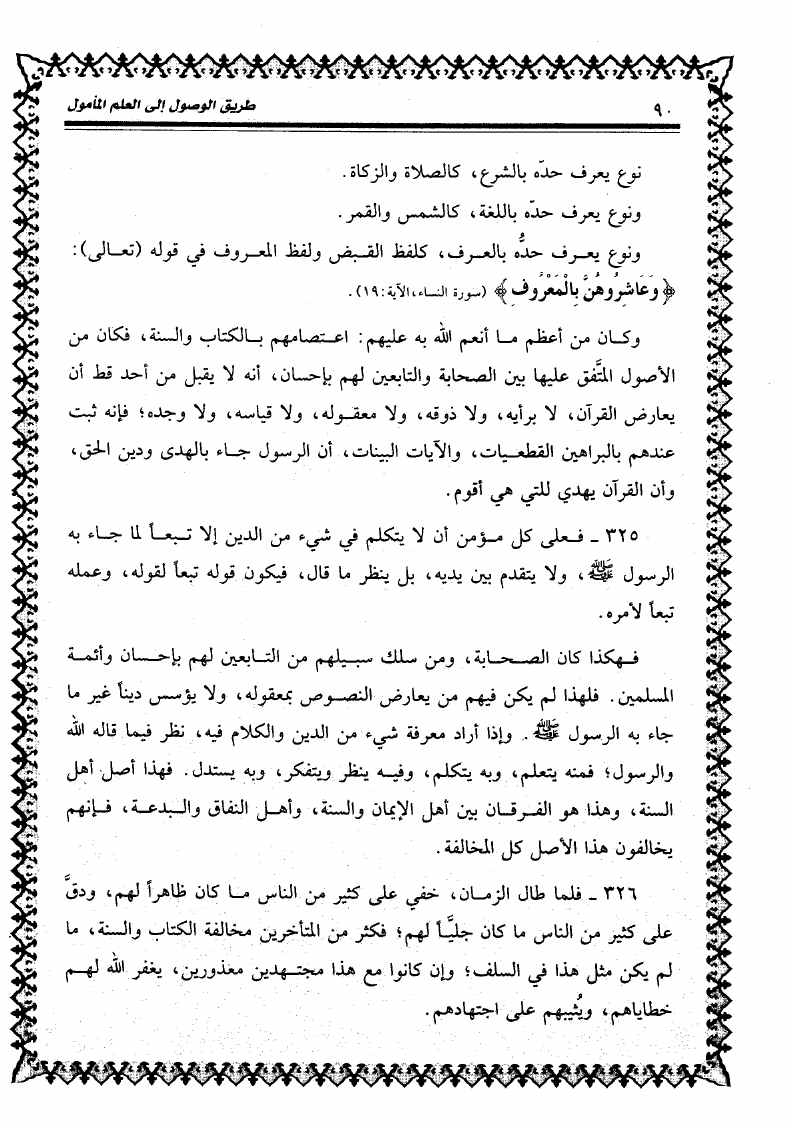 ٩٠ طريق الوصول إلى العلم المأمول
نوع يعرف حدّه بالشرع، كالصلاة والزكاة.
ونوع يعرف حدّه باللغة، كالشمس والقمر.
ونوع يعرف حدُّه بالعرف، كلفظ القبض ولفظ المعروف في قوله (تعالى):
﴿وَعَاشِرُوهُنَّ بِالْمَعْرُوفِ﴾ (سورة النساء، الآية: ١٩).
وكان من أعظم ما أنعم الله به عليهم: اعتصامهم بالكتاب والسنة، فكان من
الأصول المتَّفق عليها بين الصحابة والتابعين لهم بإحسان، أنه لا يقبل من أحد قط أن
يعارض القرآن، لا برأيه، ولا ذوقه، ولا معقوله، ولا قياسه، ولا وجده؛ فإنه ثبت
عندهم بالبراهين القطعيات، والآيات البينات، أن الرسول جاء بالهدى ودين الحق،
وأن القرآن يهدي للتي هي أقوم.
٣٢٥ ـ فعلى كل مؤمن أن لا يتكلم في شيء من الدين إلا تبعاً لما جاء به
الرسول ﷺ، ولا يتقدم بين يديه، بل ينظر ما قال، فيكون قوله تبعاً لقوله، وعمله
تبعاً لأمره.
فهكذا كان الصحابة، ومن سلك سبيلهم من التابعين لهم بإحسان وأئمة
المسلمين. فلهذا لم يكن فيهم من يعارض النصوص بمعقوله، ولا يؤسس ديناً غير ما
جاء به الرسول ﷺ. وإذا أراد معرفة شيء من الدين والكلام فيه، نظر فيما قاله الله
والرسول؛ فمنه يتعلم، وبه يتكلم، وفيه ينظر ويتفكر، وبه يستدل. فهذا أصل أهل
السنة، وهذا هو الفرقان بين أهل الإيمان والسنة، وأهل النفاق والبدعة، فإنهم
يخالفون هذا الأصل كل المخالفة.
٣٢٦ ـ فلما طال الزمان، خفي على كثير من الناس ما كان ظاهراً لهم، ودقَّ
على كثير من الناس ما كان جليَّاً لهم؛ فكثر من المتأخرين مخالفة الكتاب والسنة، ما
لم يكن مثل هذا في السلف؛ وإن كانوا مع هذا مجتهدين معذورين، يغفر الله لهم
خطاياهم، ويُثيبهم على اجتهادهم.